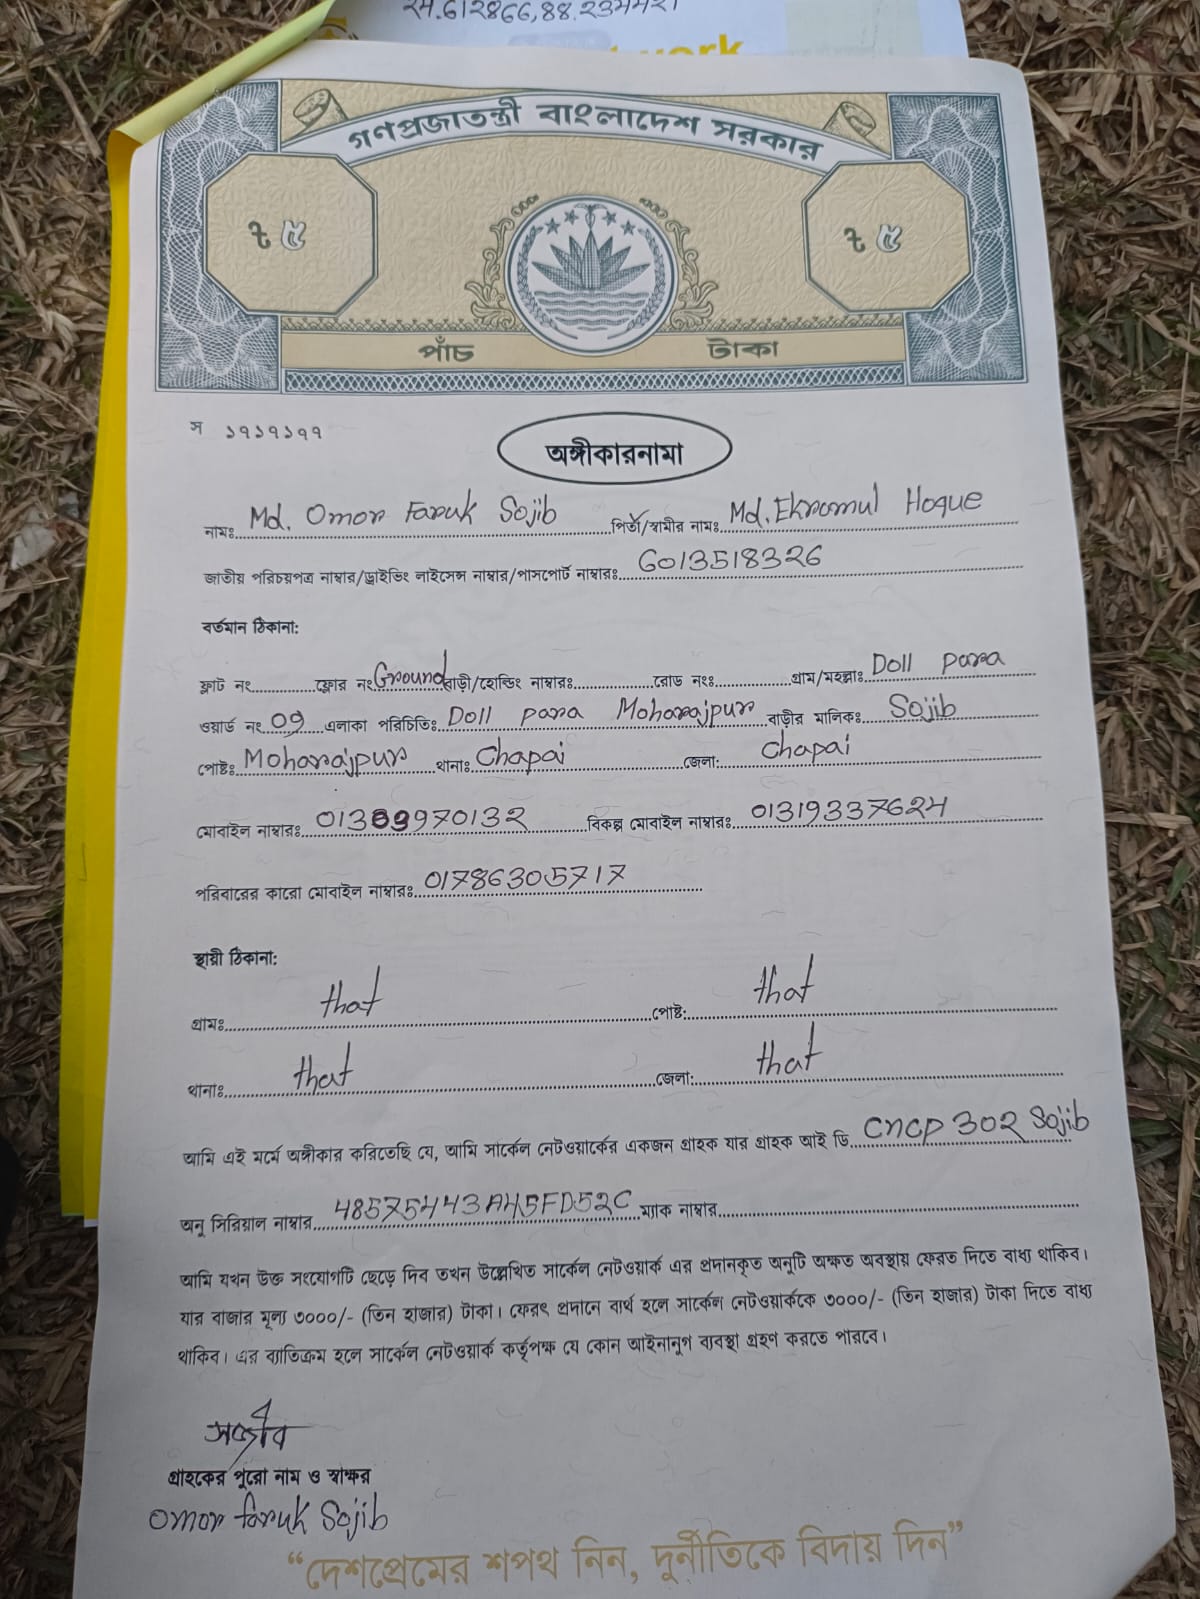 24.612866,88.234421
গণপ্রজাতন্ত্রী বাংলাদেশ সরকার
৳ ৫ ৳ ৫
পাঁচ টাকা
স ১৭১৭১৭৭
অঙ্গীকারনামা
নামঃ Md. Omor Faruk Sojib পিতা/স্বামীর নামঃ Md. Ekramul Hoque
জাতীয় পরিচয়পত্র নাম্বার/ড্রাইভিং লাইসেন্স নাম্বার/পাসপোর্ট নাম্বারঃ 6013518326
বর্তমান ঠিকানা:
ফ্লাট নং ফ্লোর নং Ground বাড়ী/হোল্ডিং নাম্বারঃ রোড নংঃ গ্রাম/মহল্লাঃ Doll para
ওয়ার্ড নং 09 এলাকা পরিচিতিঃ Doll para Moharajpur বাড়ীর মালিকঃ Sojib
পোষ্টঃ Moharajpur থানাঃ Chapai জেলা: Chapai
মোবাইল নাম্বারঃ 01389970132 বিকল্প মোবাইল নাম্বারঃ 01319337624
পরিবারের কারো মোবাইল নাম্বারঃ 01786305717
স্থায়ী ঠিকানা:
গ্রামঃ that পোষ্ট: that
থানাঃ that জেলা: that
আমি এই মর্মে অঙ্গীকার করিতেছি যে, আমি সার্কেল নেটওয়ার্কের একজন গ্রাহক যার গ্রাহক আই ডি CNCP 302 Sojib
অনু সিরিয়াল নাম্বার 48575443A45FD52C ম্যাক নাম্বার
আমি যখন উক্ত সংযোগটি ছেড়ে দিব তখন উল্লেখিত সার্কেল নেটওয়ার্ক এর প্রদানকৃত অনুটি অক্ষত অবস্থায় ফেরত দিতে বাধ্য থাকিব।
যার বাজার মূল্য ৩০০০/- (তিন হাজার) টাকা। ফেরৎ প্রদানে ব্যর্থ হলে সার্কেল নেটওয়ার্ককে ৩০০০/- (তিন হাজার) টাকা দিতে বাধ্য
থাকিব। এর ব্যাতিক্রম হলে সার্কেল নেটওয়ার্ক কর্তৃপক্ষ যে কোন আইনানুগ ব্যবস্থা গ্রহণ করতে পারবে।
সজীব
গ্রাহকের পুরো নাম ও স্বাক্ষর
Omor faruk Sojib
“দেশপ্রেমের শপথ নিন, দুর্নীতিকে বিদায় দিন”